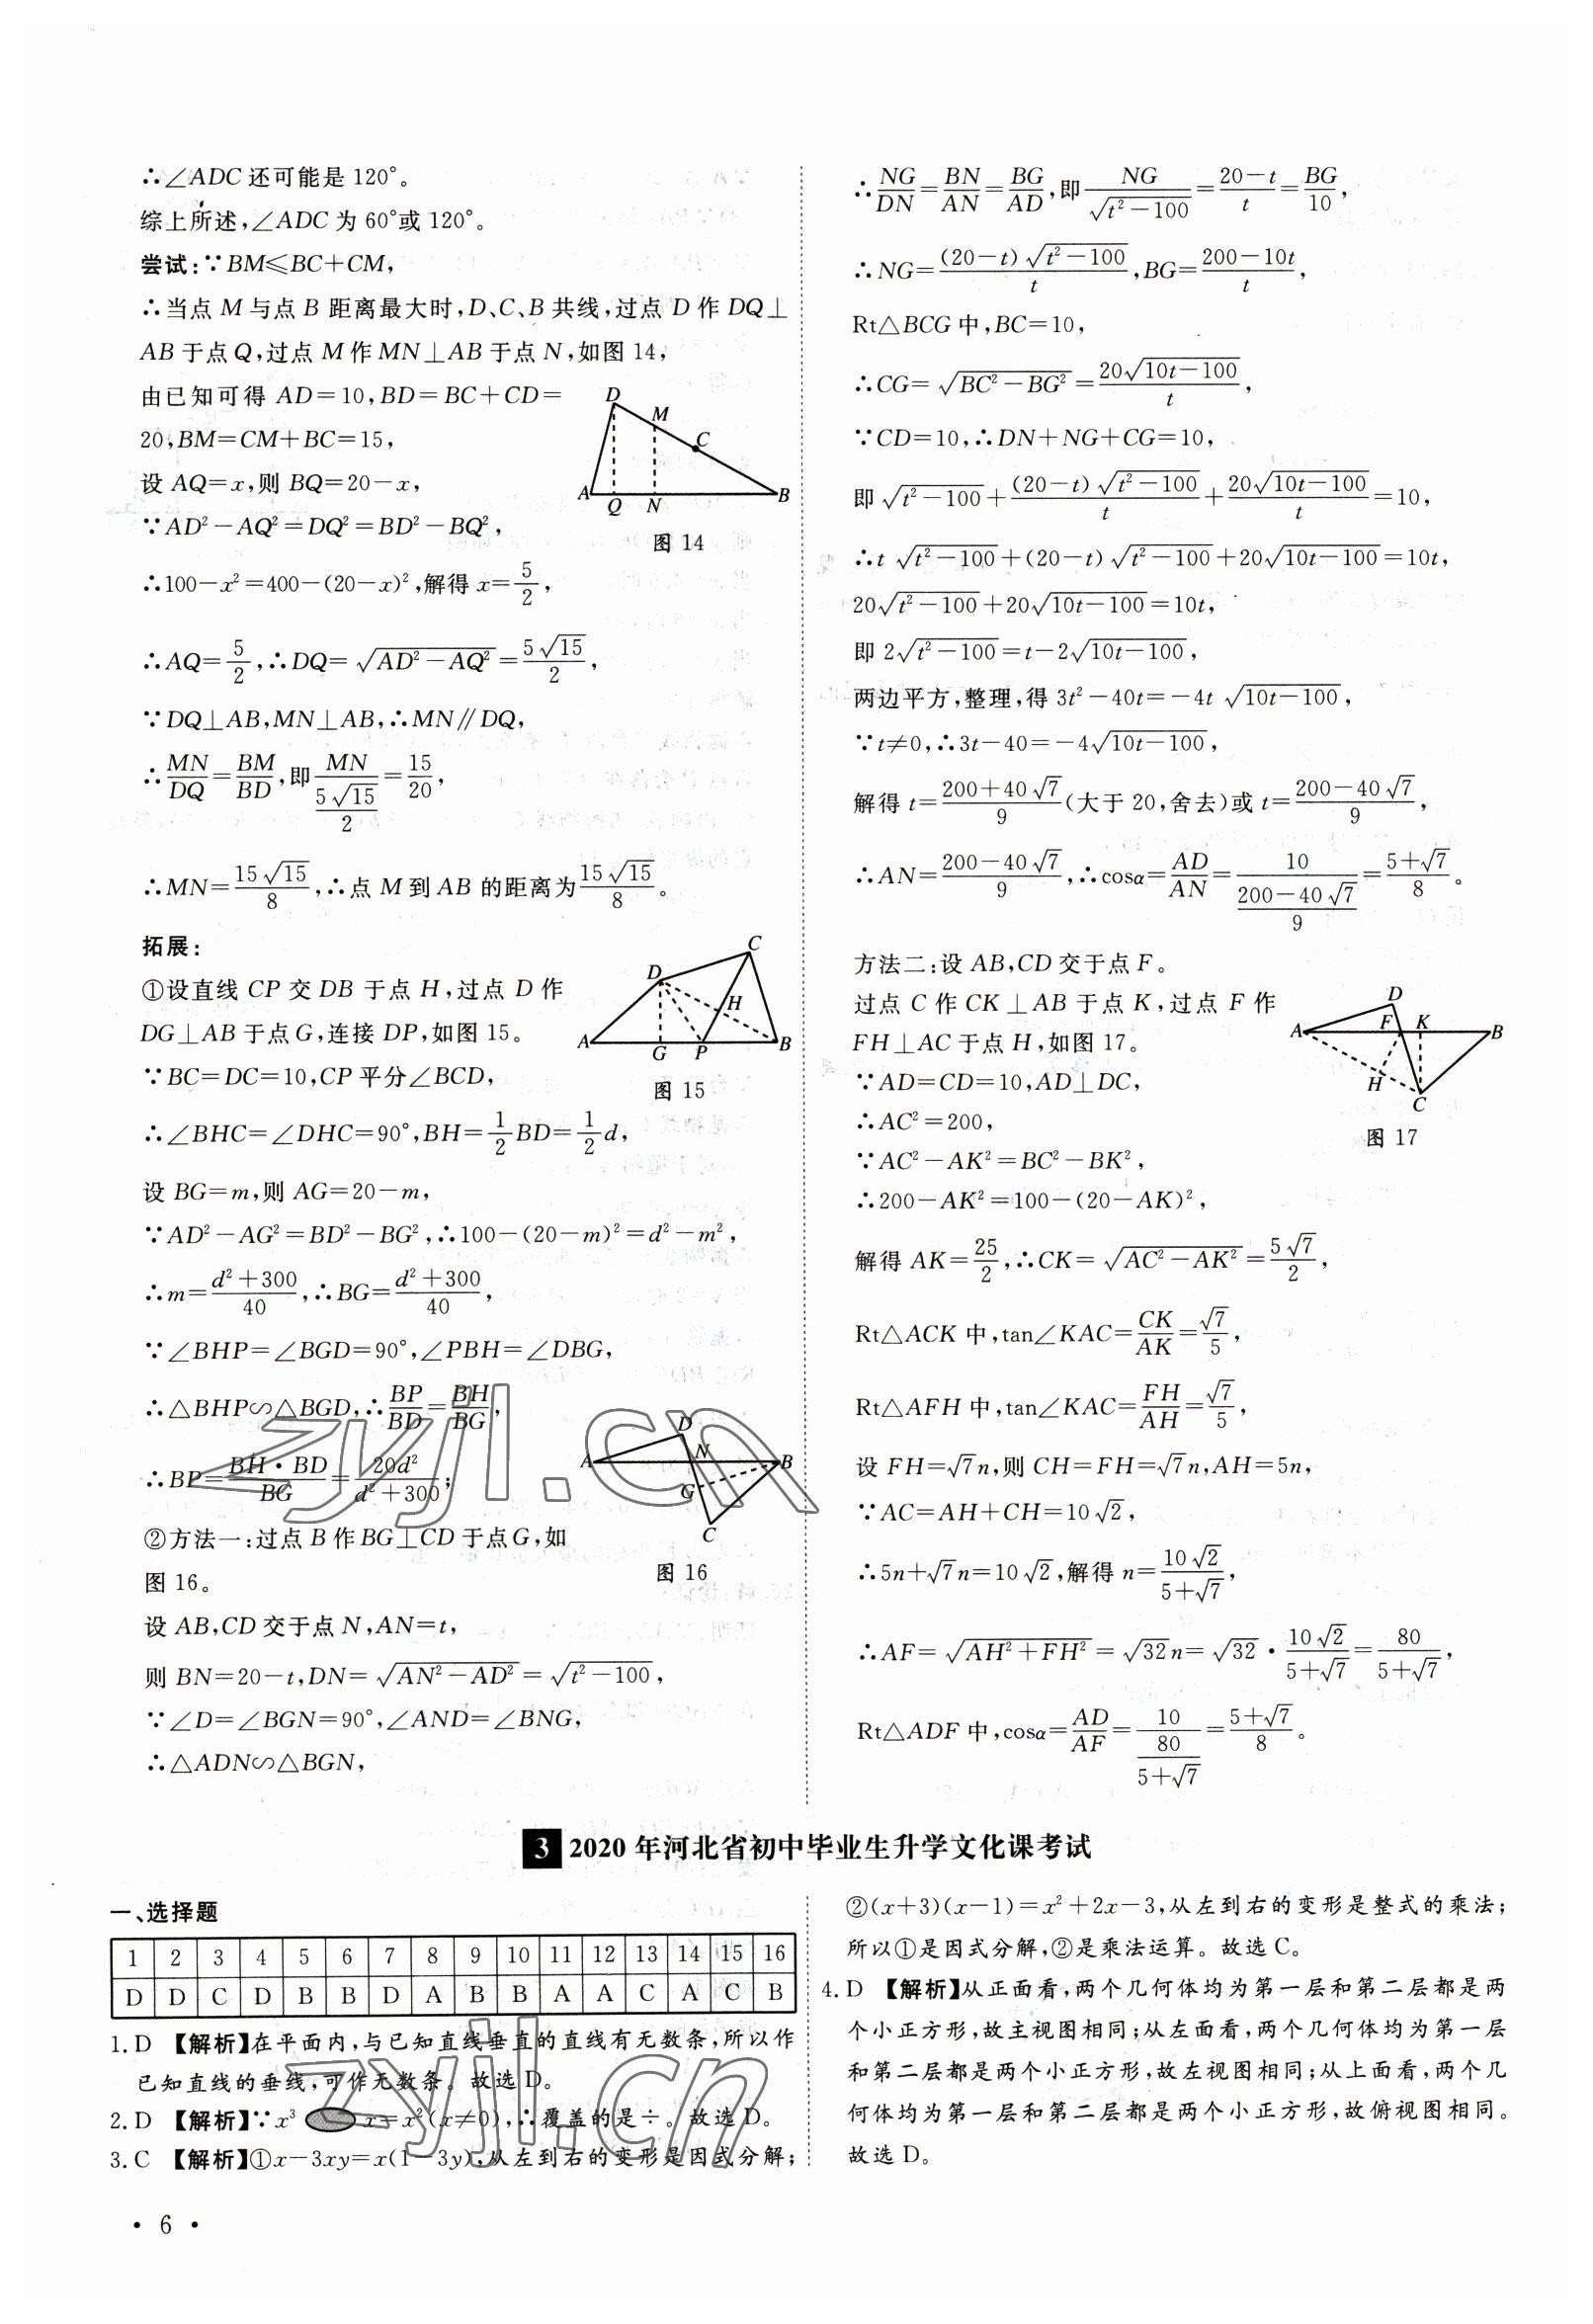 ∴∠ADC还可能是120°。
综上所述,∠ADC为60°或120°。
尝试:∵BM≤BC+CM,
∴当点M与点B距离最大时,D、C、B共线,过点D作DQ⊥
AB于点Q,过点M作MN⊥AB于点N,如图14,
由已知可得AD=10,BD=BC+CD=
20,BM=CM+BC=15,
设AQ=x,则BQ=20-x,
∵AD²-AQ²=DQ²=BD²-BQ²,
∴100-x²=400-(20-x)²,解得x=5/2,
∴AQ=5/2,∴DQ=√(AD²-AQ²)=5√15/2,
∵DQ⊥AB,MN⊥AB,∴MN∥DQ,
∴MN/DQ=BM/BD,即MN/(5√15/2)=15/20,
∴MN=15√15/8,∴点M到AB的距离为15√15/8。
D M C A Q N B
图14
拓展:
①设直线CP交DB于点H,过点D作
DG⊥AB于点G,连接DP,如图15。
∵BC=DC=10,CP平分∠BCD,
∴∠BHC=∠DHC=90°,BH=1/2BD=1/2d,
设BG=m,则AG=20-m,
∵AD²-AG²=BD²-BG²,∴100-(20-m)²=d²-m²,
∴m=(d²+300)/40,∴BG=(d²+300)/40,
∵∠BHP=∠BGD=90°,∠PBH=∠DBG,
∴△BHP∽△BGD,∴BP/BD=BH/BG,
∴BP=BH·BD/BG=20d²/(d²+300);
C D H A G P B
图15
②方法一:过点B作BG⊥CD于点G,如
图16。
设AB,CD交于点N,AN=t,
则BN=20-t,DN=√(AN²-AD²)=√(t²-100),
∵∠D=∠BGN=90°,∠AND=∠BNG,
∴△ADN∽△BGN,
D N A B G C
图16
∴NG/DN=BN/AN=BG/AD,即NG/√(t²-100)=(20-t)/t=BG/10,
∴NG=(20-t)√(t²-100)/t,BG=(200-10t)/t,
Rt△BCG中,BC=10,
∴CG=√(BC²-BG²)=20√(10t-100)/t,
∵CD=10,∴DN+NG+CG=10,
即√(t²-100)+(20-t)√(t²-100)/t+20√(10t-100)/t=10,
∴t√(t²-100)+(20-t)√(t²-100)+20√(10t-100)=10t,
20√(t²-100)+20√(10t-100)=10t,
即2√(t²-100)=t-2√(10t-100),
两边平方,整理,得3t²-40t=-4t√(10t-100),
∵t≠0,∴3t-40=-4√(10t-100),
解得t=(200+40√7)/9(大于20,舍去)或t=(200-40√7)/9,
∴AN=(200-40√7)/9,∴cosα=AD/AN=10/((200-40√7)/9)=(5+√7)/8。
方法二:设AB,CD交于点F。
过点C作CK⊥AB于点K,过点F作
FH⊥AC于点H,如图17。
∵AD=CD=10,AD⊥DC,
∴AC²=200,
∵AC²-AK²=BC²-BK²,
∴200-AK²=100-(20-AK)²,
解得AK=25/2,∴CK=√(AC²-AK²)=5√7/2,
D F K A B H C
图17
Rt△ACK中,tan∠KAC=CK/AK=√7/5,
Rt△AFH中,tan∠KAC=FH/AH=√7/5,
设FH=√7n,则CH=FH=√7n,AH=5n,
∵AC=AH+CH=10√2,
∴5n+√7n=10√2,解得n=10√2/(5+√7),
∴AF=√(AH²+FH²)=√32n=√32·10√2/(5+√7)=80/(5+√7),
Rt△ADF中,cosα=AD/AF=10/(80/(5+√7))=(5+√7)/8。
3 2020年河北省初中毕业生升学文化课考试
一、选择题
1 2 3 4 5 6 7 8 9 10 11 12 13 14 15 16
D D C D B B D A B B A A C A C B
1.D 【解析】在平面内,与已知直线垂直的直线有无数条,所以作
已知直线的垂线,可作无数条。故选D。
2.D 【解析】∵x³ x=x²(x≠0),∴覆盖的是÷。故选D。
3.C 【解析】①x-3xy=x(1-3y),从左到右的变形是因式分解;
②(x+3)(x-1)=x²+2x-3,从左到右的变形是整式的乘法;
所以①是因式分解,②是乘法运算。故选C。
4.D 【解析】从正面看,两个几何体均为第一层和第二层都是两
个小正方形,故主视图相同;从左面看,两个几何体均为第一层
和第二层都是两个小正方形,故左视图相同;从上面看,两个几
何体均为第一层和第二层都是两个小正方形,故俯视图相同。
故选D。
zyjl.cn
zyjl.cn
· 6 ·